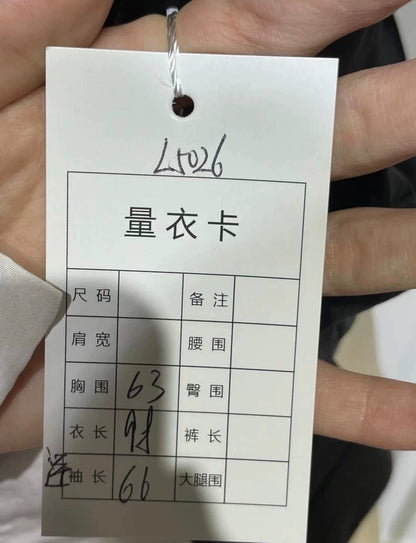 L5026
量衣卡
尺码 备注
肩宽 腰围
胸围 63 臀围
衣长 裤长
袖长 66 大腿围